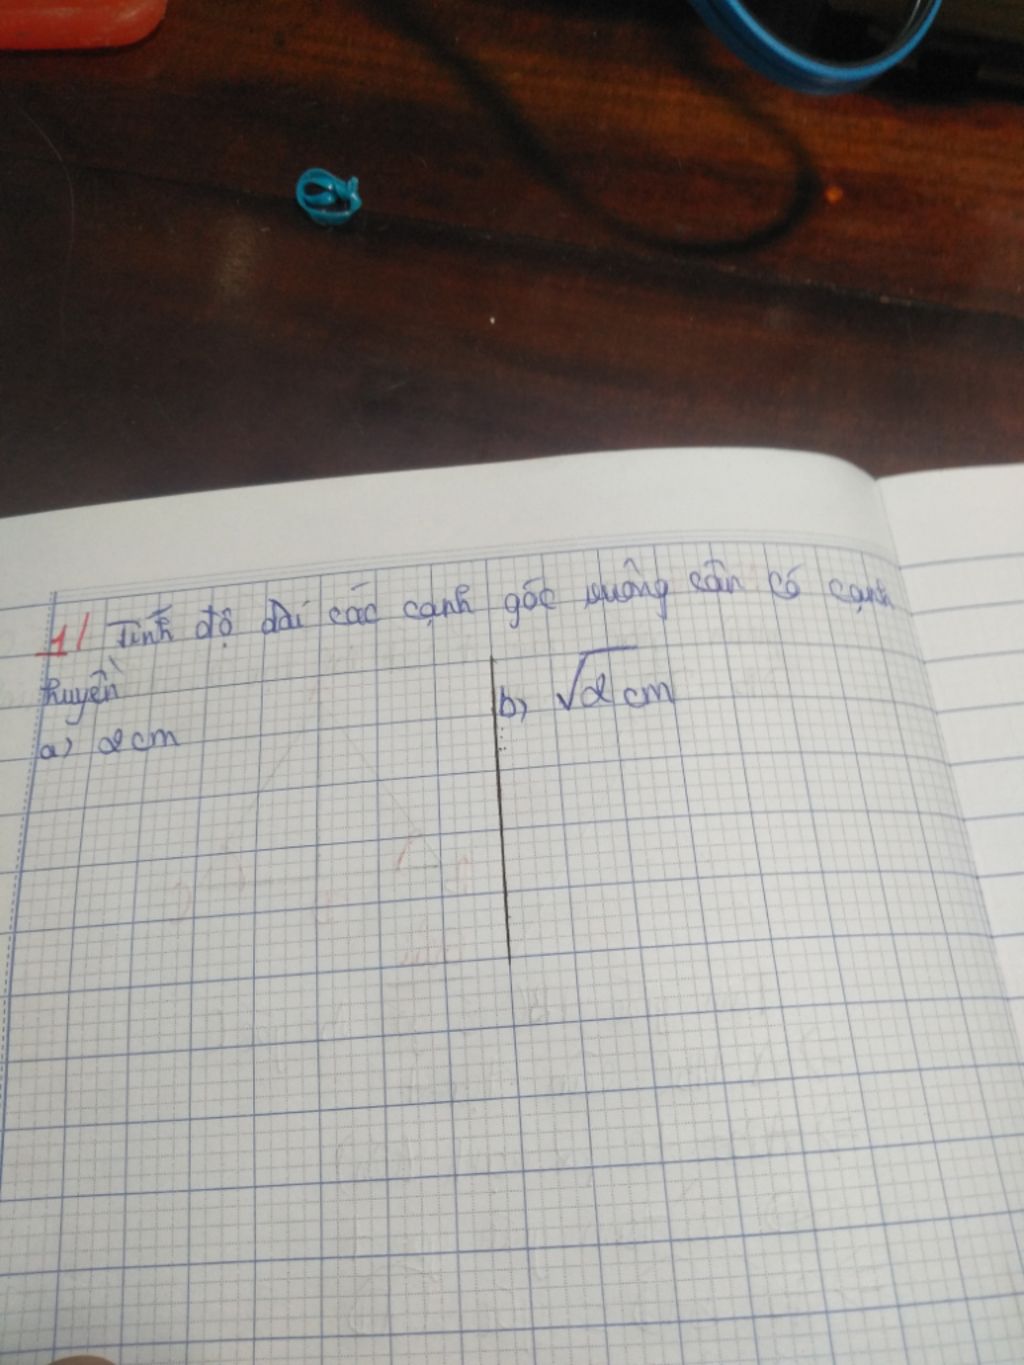 1/ Tính độ dài các cạnh góc vuông cân có cạnh
huyền
a) 2 cm
b) √2 cm